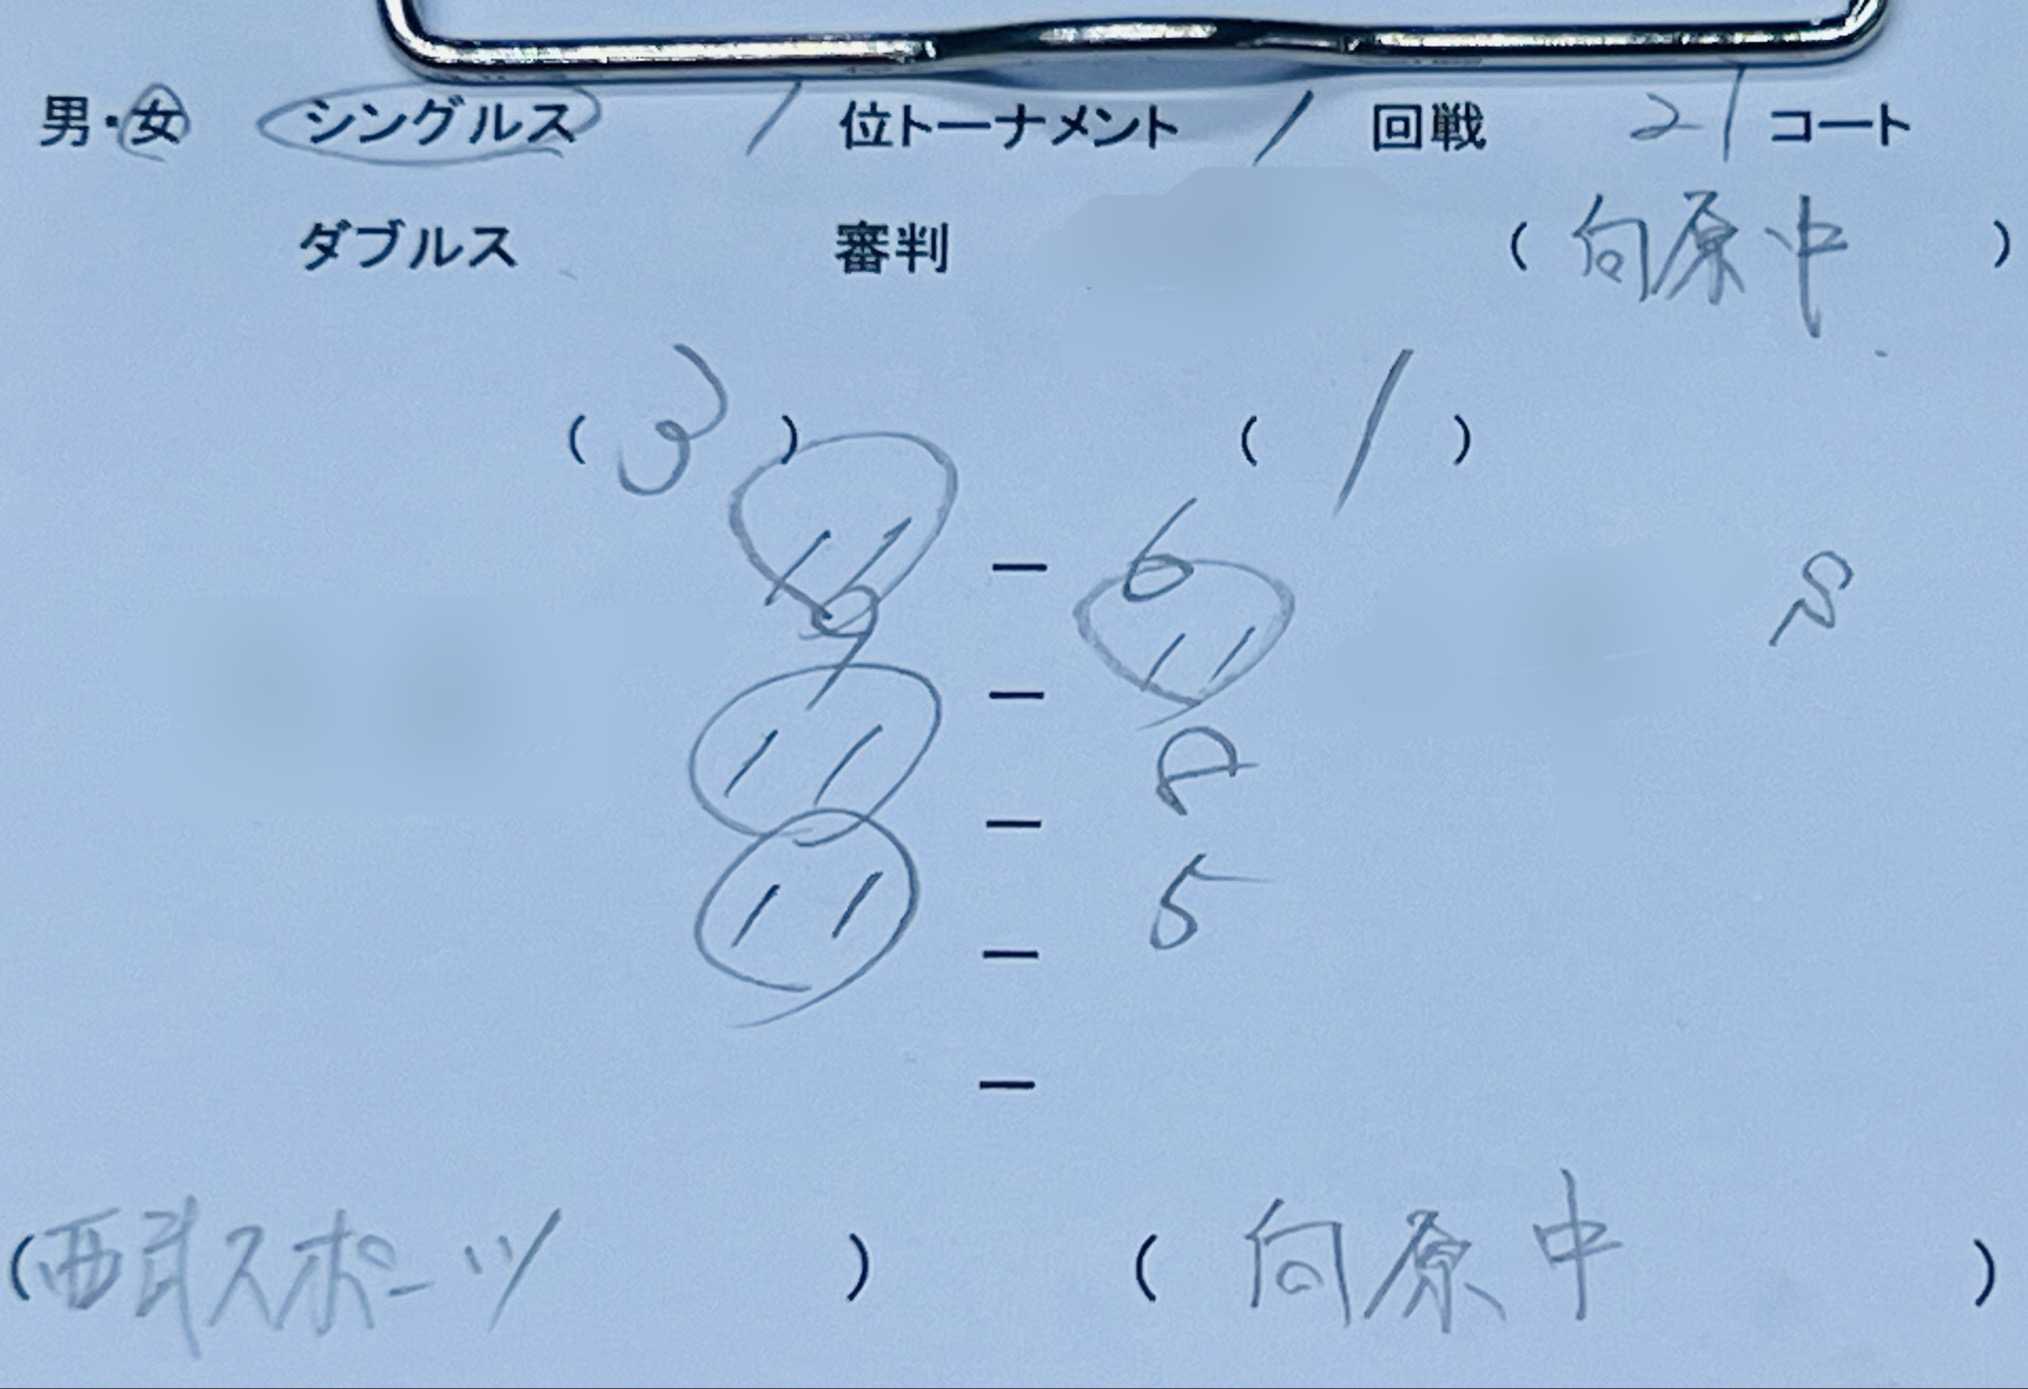 男・女 シングルス 1 位トーナメント 1 回戦 21 コート
ダブルス 審判 (向原中)
(3) (1)
11 — 6
9 — 11
11 — 8
11 — 5
—
S
(西武スポーツ) (向原中)